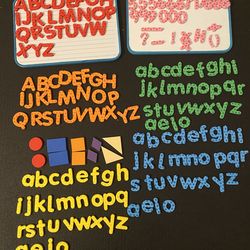 ABCDEFGH
IJKLMNOP
QRSTUVW
XYZ
ABCDEFGH
IJKLMNOP
QRSTUVWXYZ
abcdefghi
jklmnopqr
stuvwxyz
aeio
abcdefgh
ijklmnopqr
stuvwxyz
aeio
abcdefghi
jklmnopqr
stuvwxyz
aeio